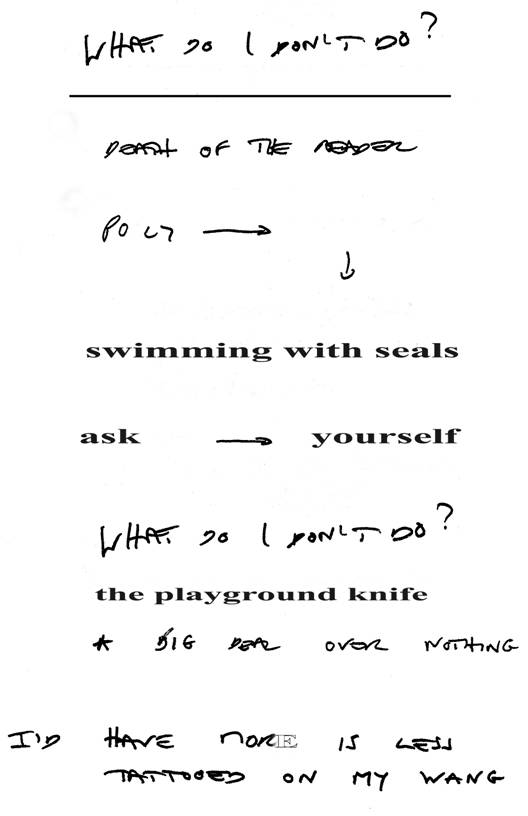 WHAT DO I DON'T DO?
DEATH OF THE READER
POLY →
↓
swimming with seals
ask → yourself
WHAT DO I DON'T DO?
the playground knife
* BIG DEAL OVER NOTHING
I'D HAVE MORE IS LESS
TATTOOED ON MY WANG